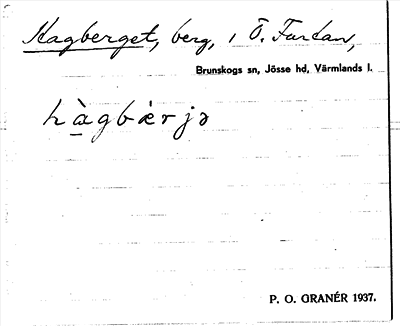 Hagberget, berg, i Ö. Furtan,
Brunskogs sn, Jösse hd, Värmlands l.
hàgbærjə
P. O. GRANÉR 1937.